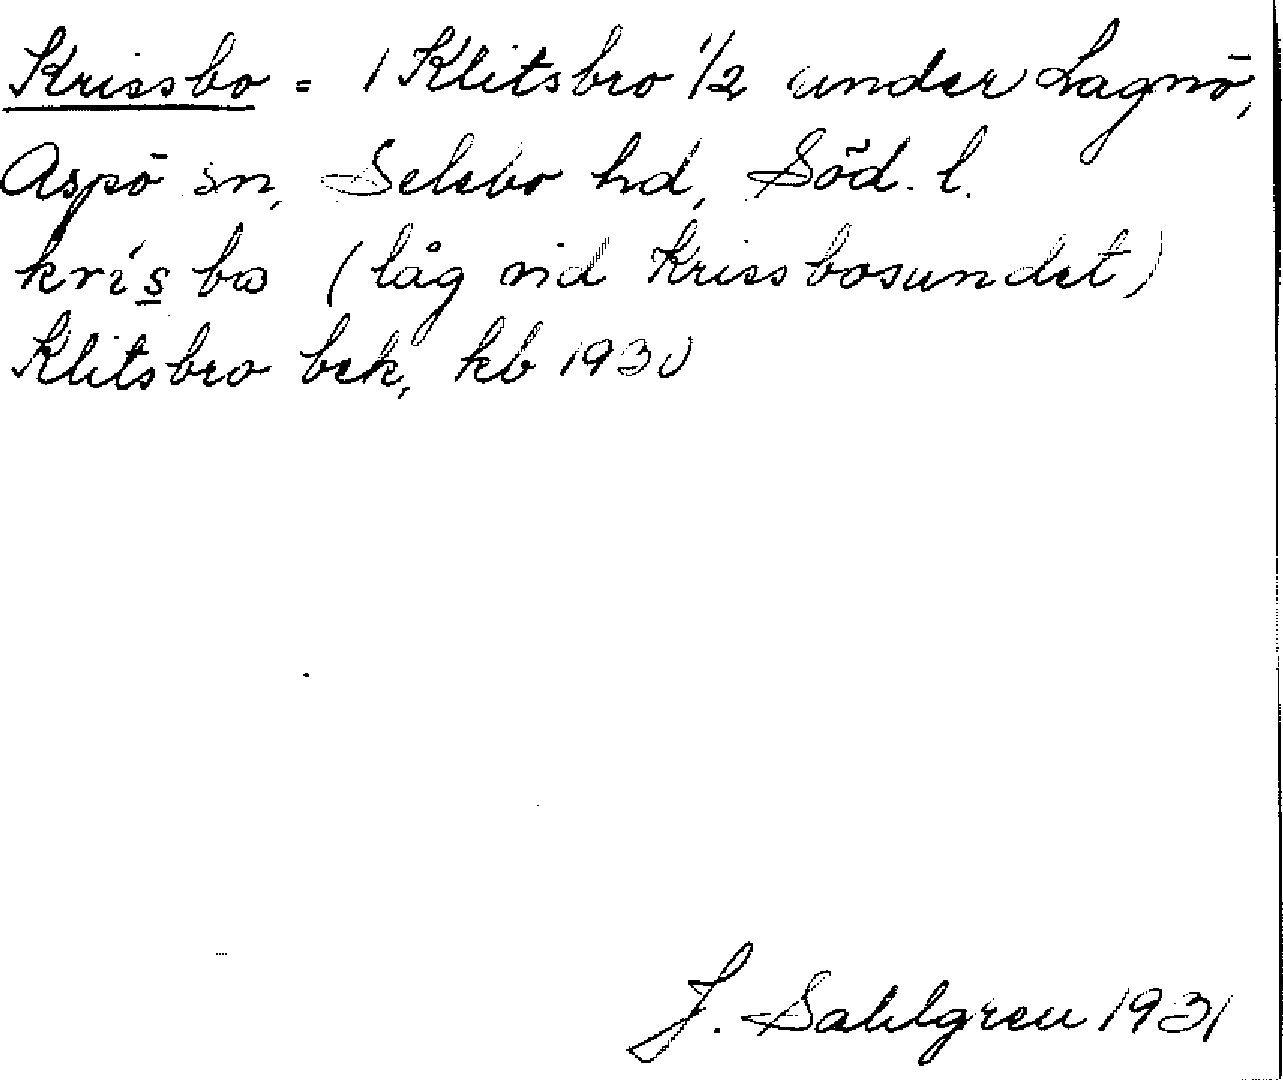 Krissbo = 1 Klitsbro 1/2 under Lagnö,
Aspö sn, Selebo hd, Söd. l.
krís bω (låg vid Krissbosundet)
Klitsbro bek, kb 1930
J. Sahlgren 1931